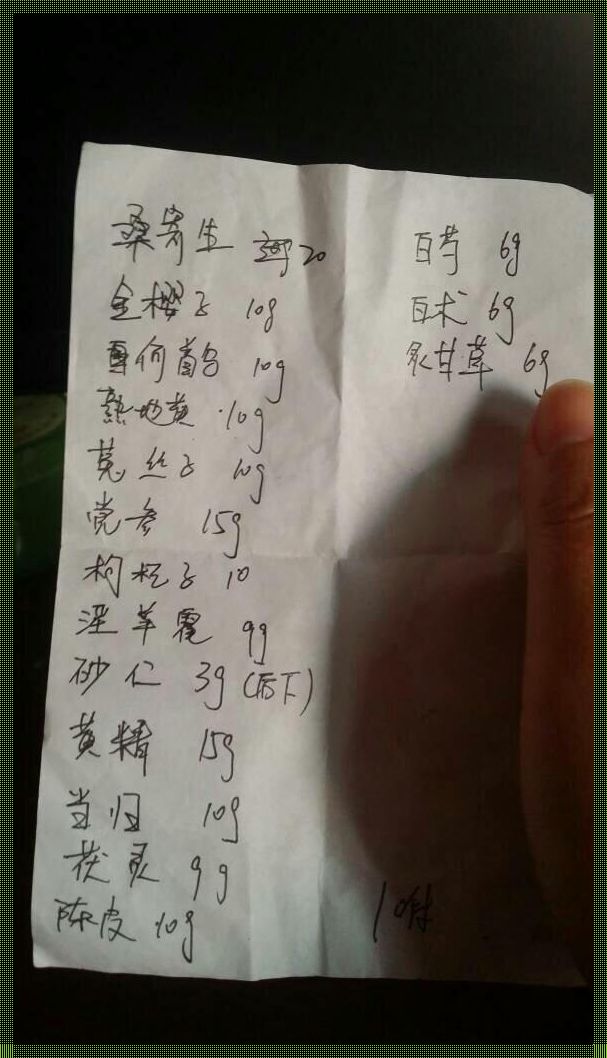 桑寄生 20
金樱子 10g
何首乌 10g
熟地黄 10g
菟丝子 10g
党参 15g
枸杞子 10
淫羊藿 9g
砂仁 3g(后下)
黄精 15g
当归 10g
茯苓 9g
陈皮 10g
百芍 6g
百术 6g
炙甘草 6g